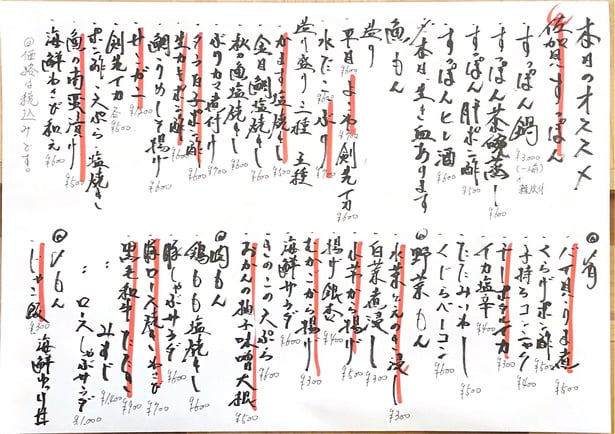 本日のオススメ
佐賀産すっぽん
すっぽん鍋 ¥3,000 (一人前) 雑炊付
すっぽん茶碗蒸し ¥600
すっぽん肝ポン酢 ¥500
すっぽんヒレ酒 ¥600
本日生き血あります
◎魚もん
盛り
平目 ¥600 よこわ ¥700 剣先イカ ¥600
水だこ ¥600 ぶり ¥700
盛り盛り 三種 五種
かます塩焼き ¥500
金目鯛塩焼き ¥600
秋の魚塩焼き ¥600
ぶりカマ煮付け ¥700
タラ白子ポン酢 ¥600
生カキポン酢 ¥700
鯛うすめしそ揚げ ¥600
サンガニ ¥1,200
剣先イカ 各¥600
ポン酢 天ぷら 塩焼き
魚の南蛮漬け ¥500
海鮮わさび和え ¥600
◎価格は税込みです。
◎肴
バイ貝うま煮 ¥500
くらげポン酢 ¥500
子持ちコンニャク ¥400
チーズポテイカ ¥500
イカ塩辛 ¥400
たたみいわし ¥500
くじらベーコン ¥500
◎野菜もん
水菜とえのき浸し ¥300
白菜煮浸し ¥300
水芋から揚げ ¥400
揚げ銀杏 ¥500
むかごから揚げ ¥300
海鮮サラダ ¥600
きのこの天ぷら
おかんの柚子味噌大根 ¥500
◎肉もん
鶏もも塩焼き ¥600
豚しゃぶサラダ ¥600
豚ロース焼きわさび ¥700
黒毛和牛たたき ¥900
〃 みすじ ¥1,200
〃 ロースしゃぶサラダ ¥1,000
◎〆もん
じゃこ飯 ¥300 海鮮出し丼